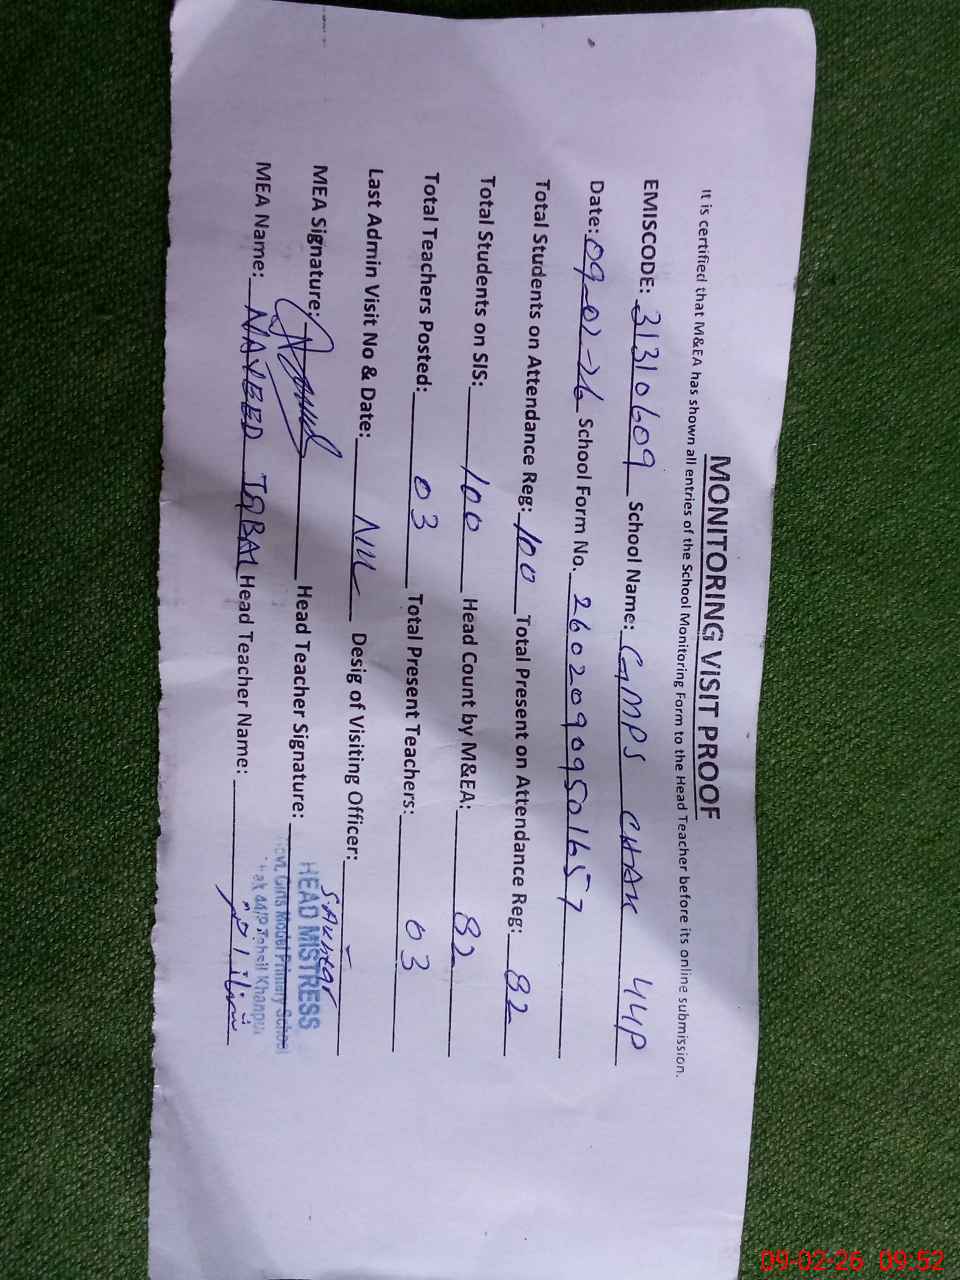 MONITORING VISIT PROOF
It is certified that M&EA has shown all entries of the School Monitoring Form to the Head Teacher before its online submission.
EMISCODE: 31310609 School Name: GMPS CHAK 44P
Date: 09-02-26 School Form No. 260209095016 57
Total Students on Attendance Reg: 100 Total Present on Attendance Reg: 82
Total Students on SIS: 100 Head Count by M&EA: 82
Total Teachers Posted: 03 Total Present Teachers: 03
Last Admin Visit No & Date: Nil Desig of Visiting Officer: -
MEA Signature: Head Teacher Signature: SAkhtar
HEAD MISTRESS
Govt. Girls Model Primary School
Chak 44/P Tehsil Khanpur
MEA Name: NAVEED IQBAL Head Teacher Name:
09-02-26 09:52